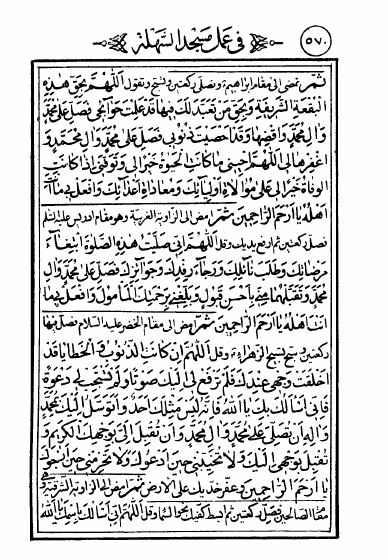 ٥٧٠
في عمل مسجد السهلة
ثم تمضي الى مقام ابراهيم وتصلي ركعتين وتسبح وتقول اَللّٰهُمَّ بِحَقِّ هٰذِهِ
الْبُقْعَةِ الشَّرِيفَةِ وَبِحَقِّ مَنْ تَعَبَّدَ لَكَ فِيهَا قَدْ عَلِمْتَ حَوَائِجِي فَصَلِّ عَلٰى مُحَمَّدٍ
وَاٰلِ مُحَمَّدٍ وَاقْضِهَا وَقَدْ اَحْصَيْتَ ذُنُوبِي فَصَلِّ عَلٰى مُحَمَّدٍ وَاٰلِ مُحَمَّدٍ وَ
اغْفِرْهَا لِي اَللّٰهُمَّ اَحْيِنِي مَا كَانَتِ الْحَيٰوةُ خَيْرًا لِي وَتَوَفَّنِي اِذَا كَانَتِ
الْوَفَاةُ خَيْرًا لِي عَلٰى مُوَالَاةِ اَوْلِيَائِكَ وَمُعَادَاةِ اَعْدَائِكَ وَافْعَلْ بِي مَا اَنْتَ
اَهْلُهُ يَا اَرْحَمَ الرَّاحِمِينَ ثم امض الى الزاوية الغربية وهو مقام ادريس عليه السلم
فصل ركعتين ثم ارفع يديك وقل اَللّٰهُمَّ اِنِّي صَلَّيْتُ هٰذِهِ الصَّلٰوةَ ابْتِغَاءَ
مَرْضَاتِكَ وَطَلَبَ نَائِلِكَ وَرَجَاءَ رِفْدِكَ وَجَوَائِزِكَ فَصَلِّ عَلٰى مُحَمَّدٍ وَاٰلِ
مُحَمَّدٍ وَتَقَبَّلْهَا مِنِّي بِاَحْسَنِ قَبُولٍ وَبَلِّغْنِي بِرَحْمَتِكَ الْمَأْمُولَ وَافْعَلْ بِي مَا
اَنْتَ اَهْلُهُ يَا اَرْحَمَ الرَّاحِمِينَ ثم امض الى مقام الخضر عليه السلام فصل فيها
ركعتين وسبح تسبيح الزهراء وقل اَللّٰهُمَّ اِنْ كَانَتِ الذُّنُوبُ وَ الْخَطَايَا قَدْ
اَخْلَقَتْ وَجْهِي عِنْدَكَ فَلَمْ تَرْفَعْ لِي اِلَيْكَ صَوْتًا وَلَمْ تَسْتَجِبْ لِي دَعْوَةً
فَاِنِّي اَسْاَلُكَ بِكَ يَا اَللّٰهُ فَاِنَّهُ لَيْسَ مِثْلَكَ اَحَدٌ وَاَتَوَسَّلُ اِلَيْكَ بِمُحَمَّدٍ
وَاٰلِهِ اَنْ تُصَلِّيَ عَلٰى مُحَمَّدٍ وَاٰلِ مُحَمَّدٍ وَاَنْ تُقْبِلَ اِلَيَّ بِوَجْهِكَ الْكَرِيمِ وَ
تُقْبِلَ بِوَجْهِي اِلَيْكَ وَلَا تُخَيِّبْنِي حِينَ اَدْعُوكَ وَلَا تَحْرِمْنِي حِينَ اَرْجُوكَ
يَا اَرْحَمَ الرَّاحِمِينَ وعفر خديك على الارض ثم امض الى الزاوية الشرقية
مقام الصالحين فصل ركعتين ثم ابسط كفيك نحو السماء وقل اَللّٰهُمَّ اِنِّي اَسْاَلُكَ بِاسْمِكَ يَا اَللّٰهُ